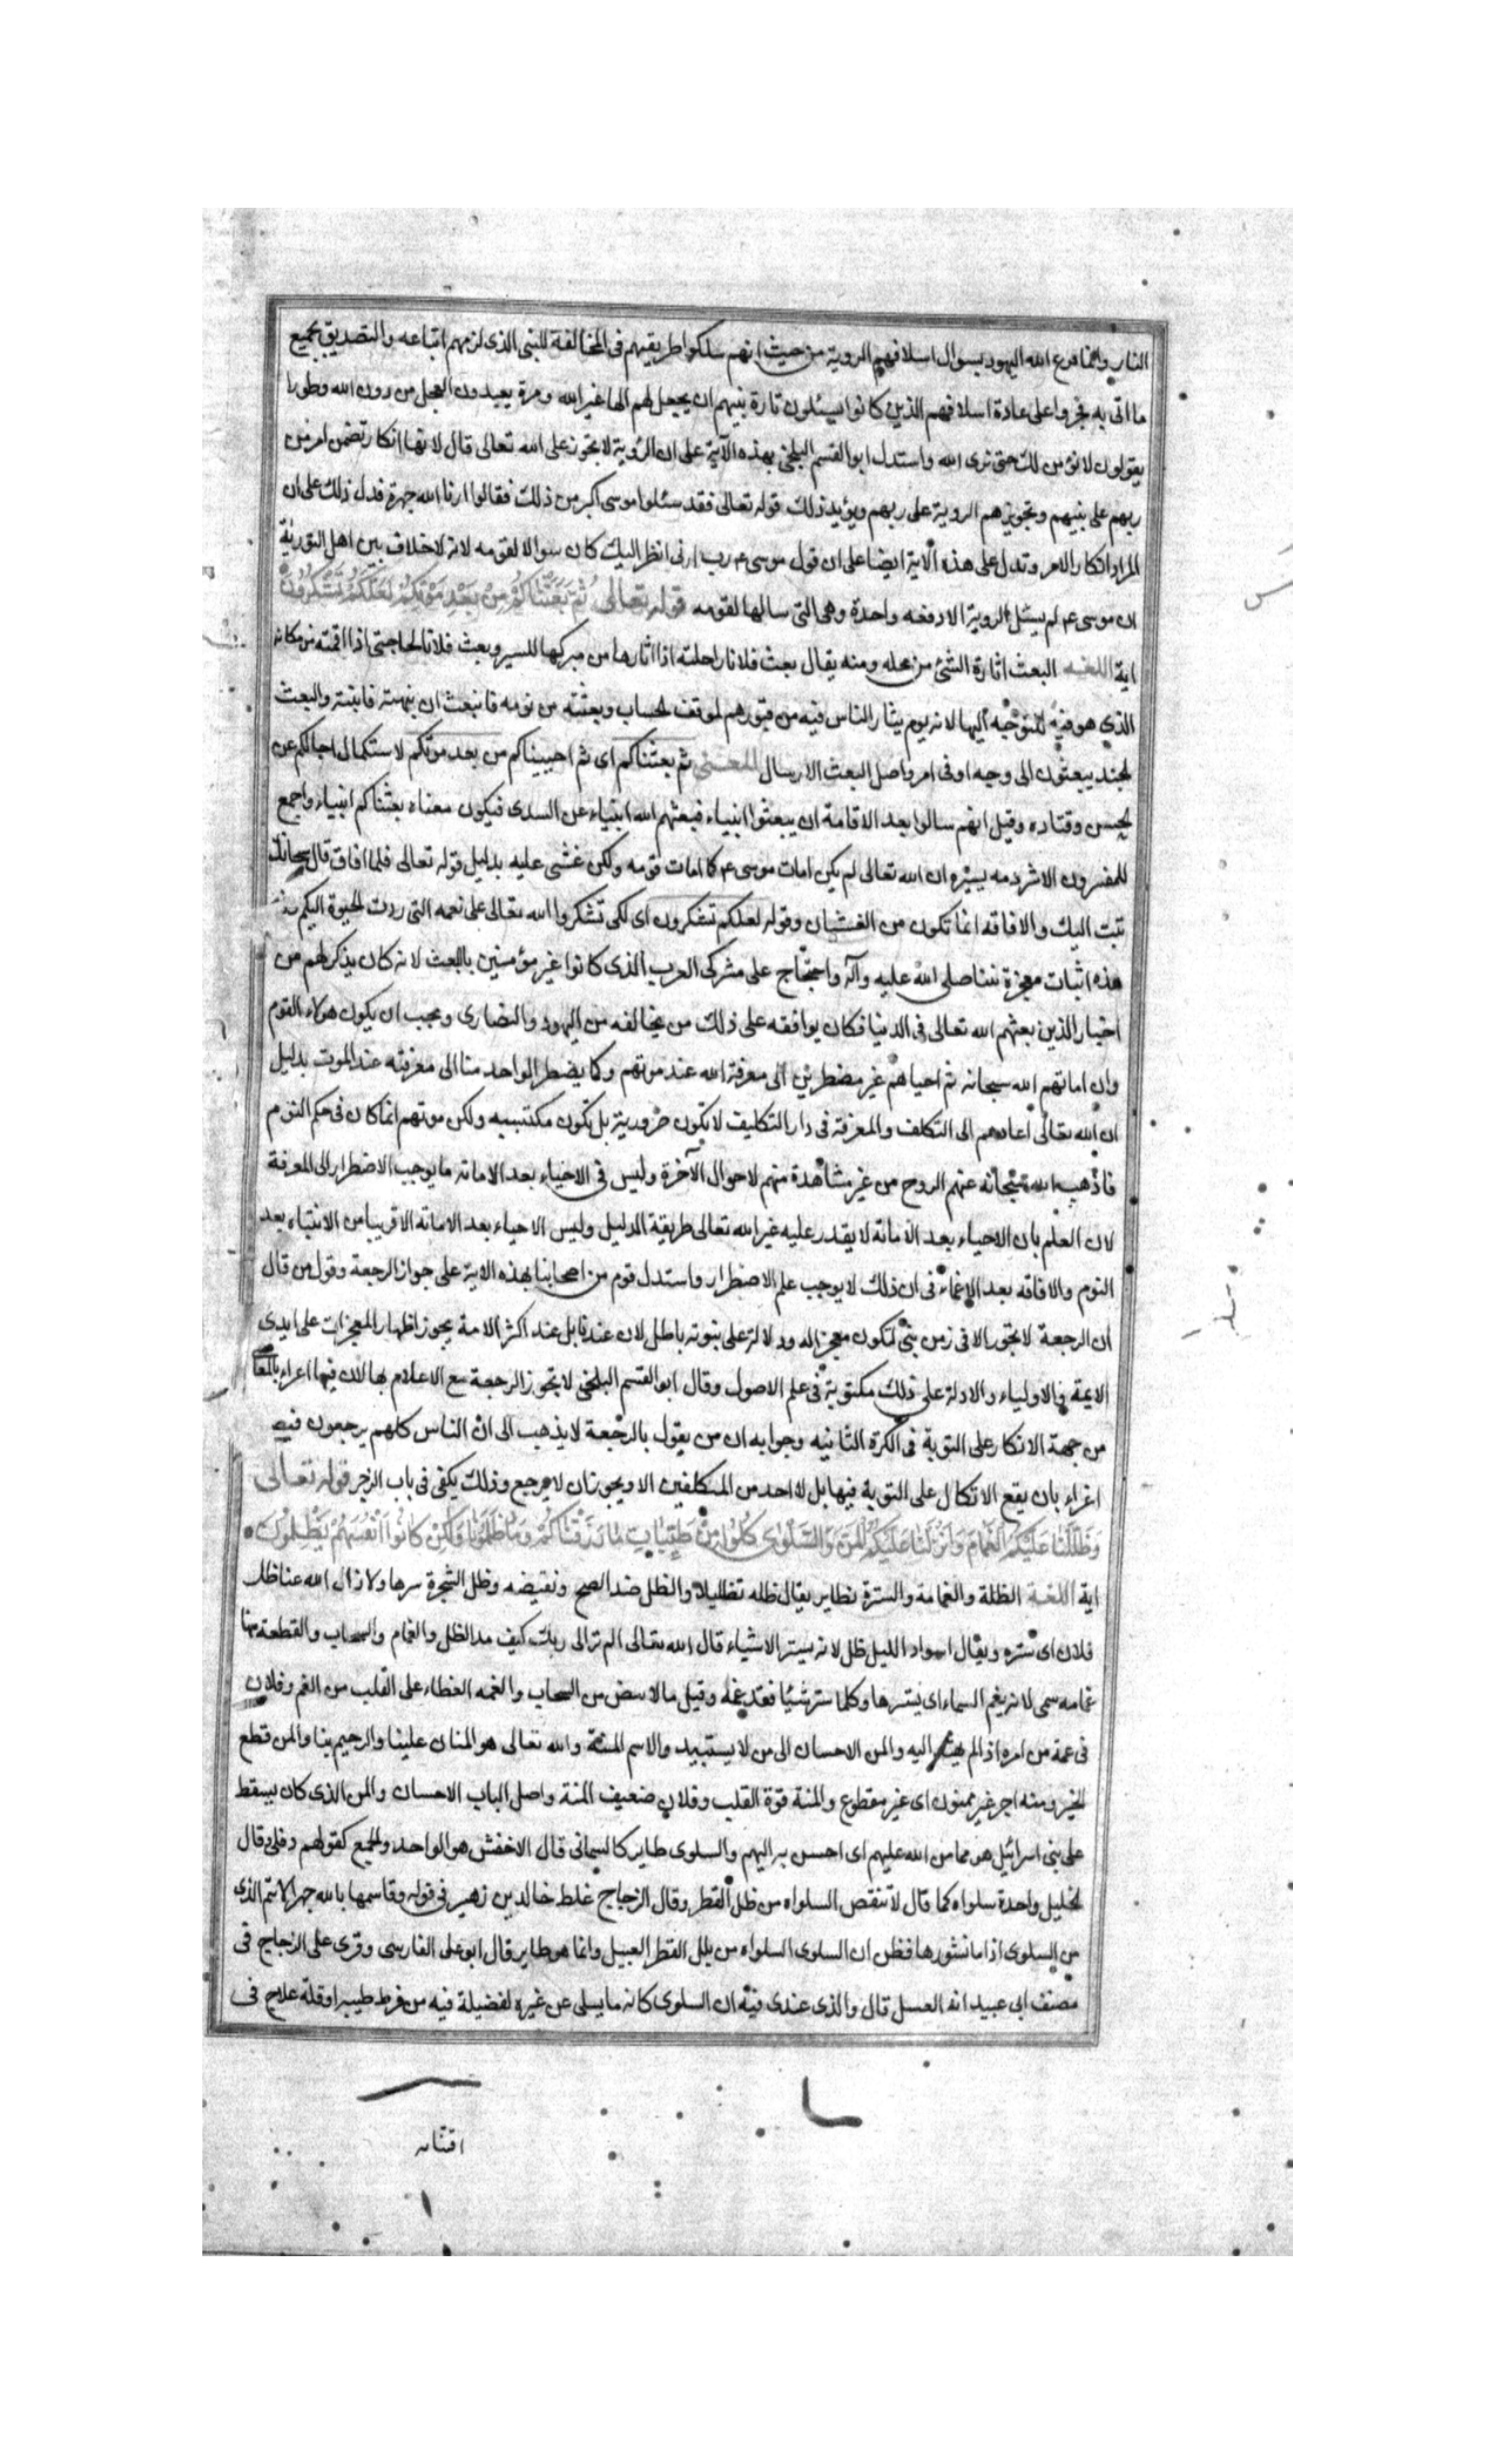 النار وانما قرع الله اليهود بسوال اسلافهم الروية من حيث انهم سلكوا طريقتهم فى المخالفة للنبى الذى لزمهم اتباعه والتصديق بجميع
ما اتى به فجروا على عادة اسلافهم الذين كانوا يسئلون تارة نبيهم ان يجعل لهم الها غير الله ومرة يعبدون العجل من دون الله وطورا
يقولون لا نؤمن لك حتى نرى الله واستدل ابو القسم البلخى بهذه الآية على ان الرؤية لا تجوز على الله تعالى قال لانها انكار تضمن امرين
ربهم على نبيهم وتجويزهم الروية على ربهم ويؤيد ذلك قوله تعالى فقد سئلوا موسى اكبر من ذلك فقالوا ارنا الله جهرة فدل ذلك على ان
المراد انكار الامر وتدل على هذه الاية ايضا على ان قول موسى ع رب ارنى انظر اليك كان سوالا لقومه لانه لا خلاف بين اهل التورية
ان موسى ع لم يسئل الروية الا دفعه واحدة وهى التى سالها لقومه قوله تعالى ثُمَّ بَعَثْنَاكُمْ مِنْ بَعْدِ مَوْتِكُمْ لَعَلَّكُمْ تَشْكُرُونَ
اية اللغه البعث اثارة الشئ من محله ومنه يقال بعث فلان راحلته اذا اثارها من مبركها للسير وبعث فلانا لحاجتى اذا اقمته من مكانه
الذى هو فيه للتوجه اليها لانه يوم يثار الناس فيه من قبورهم لموقف الحساب وبعثته من نومه فانبعث اى نبهته فانتبه والبعث
لجند يبعثون الى وجه او فى امر واصل البعث الارسال المعنى ثم بعثناكم اى ثم احييناكم من بعد موتكم لاستكمال اجالكم عن
لحسن وقتاده وقيل انهم سالوا بعد الاقامة ان يبعثوا انبياء فبعثهم الله انبياء عن السدى فيكون معناه بعثناكم انبياء واجمع
للمفسرون الا شرذمه يسيره ان الله تعالى لم يكن امات موسى ع كما امات قومه ولكن غشى عليه بدليل قوله تعالى فلما افاق قال سبحانك
تبت اليك والافاقه انما تكون من الغشيان وقوله لعلكم تشكرون اى لكى تشكروا الله تعالى على نعمه التى ردت الحيوة اليكم
هذه اثبات معجزة نبينا صلى الله عليه وآله واحتجاج على مشركى العرب الذى كانوا غير مؤمنين بالبعث لانه كان يذكر لهم من
اخبار الذين بعثهم الله تعالى فى الدنيا فكان يوافقه على ذلك من يخالفه من اليهود والنصارى ويجب ان يكون هولاء القوم
وان اماتهم الله سبحانه ثم احياهم غير مضطرين الى معرفة الله عند موتهم وكا يضطر الواحد منا الى معرفته عند الموت بدليل
ان الله تعالى اعادهم الى التكلف والمعرفة فى دار التكليف لا تكون ضرورية بل تكون مكتسبه ولكن موتهم انما كان فى حكم النوم
فاذهب الله سبحانه عنهم الروح من غير مشاهدة منهم لاحوال الآخرة وليس فى الاحياء بعد الاماته ما يوجب الاضطرار الى المعرفة
لان العلم بان الاحياء بعد الاماتة لا يقدر عليه غير الله تعالى طريقة الدليل وليس الاحياء بعد الاماته الا قريبا من الانتباه بعد
النوم والافاقه بعد الاغماء فى ان ذلك لا يوجب علم الاضطرار واستدل قوم من اصحابنا بهذه الاية على جواز الرجعة وقول من قال
ان الرجعة لا تجوز الا فى زمن نبى لتكون معجزا له ودلالة على نبوته باطل لان عندنا بل عند اكثر الامة يجوز اظهار المعجزات على ايدى
الايمة والاولياء والادلة على ذلك مكتوبة فى علم الاصول وقال ابو القسم البلخى لا تجوز الرجعة مع الاعلام بها لان فيها اغراء بالمعا
من جهة الاتكار على التوبة فى الكرة الثانيه وجوابه ان من يقول بالرجعة لا يذهب الى ان الناس كلهم يرجعون فيص
اغراء بان يقع الاتكال على التوبة فيها بل لا احد من المكلفين الا ويجوز ان لا يرجع وذلك يكفى فى باب الزجر قوله تعالى
وَظَلَّلْنَا عَلَيْكُمُ الْغَمَامَ وَاَنْزَلْنَا عَلَيْكُمُ الْمَنَّ وَالسَّلْوٰى كُلُوا مِنْ طَيِّبَاتِ مَا رَزَقْنَاكُمْ وَمَا ظَلَمُونَا وَلٰكِنْ كَانُوا اَنْفُسَهُمْ يَظْلِمُونَ
اية اللغة الظلة والغمامة والسترة نظاير يقال ظله تظليلا والظل ضد الضح ونقيضه وظل الشجرة سرها ولا زال الله عنا ظل
فلان اى ستره ويقال لسواد الليل ظل لانه يستر الاشياء قال الله تعالى الم تر الى ربك كيف مد الظل والغمام والسحاب والقطعة منها
غمامه سمى لانه يغم السماء اى يسترها وكلما ستر شيئا فقد غمه وقيل ما لابيض من السحاب والغمه الغطاء على القلب من الغم وفلان
فى غمة من امره اذا لم يهتد اليه والمن الاحسان الى من لا يستثيبه والاسم المنة والله تعالى هو المنان علينا والرحيم بنا والمن قطع
الخير ومنه اجر غير ممنون اى غير مقطوع والمنة قوة القلب وفلان ضعيف المنة واصل الباب الاحسان والمن الذى كان يسقط
على بنى اسرائيل هو مما من الله عليهم اى احسن به اليهم والسلوى طاير كالسمانى قال الاخفش هو الواحد والجمع كقولهم دفلى وقال
لخليل واحدة سلواه كما قال لا تنقص السلواه من ظل القطر وقال الزجاج غلط خالد بن زهير فى قوله وقاسمها بالله جهرا لانتم الذى
من السلوى اذا ما نشورها فظن ان السلوى السلواه من بلل القطر العسل وانما هو طاير قال ابو على الفارسى وقرى على الزجاج فى
مصنف ابى عبيد انه العسل قال والذى عندى فيه ان السلوى كانه ما يسلى عن غيره لفضيلة فيه من فرط طيبه او قلة علاج فى
اقتنائه